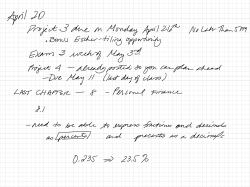 April 20
Project 3 due on Monday April 26th No Later Than 5pm
. Bonus Escher-tiling opportunity
Exam 3 week of May 3rd
Project 4 - already posted so you can plan ahead
- Due May 11 (last day of class)
LAST CHAPTER - 8 - Personal Finance
8.1
- need to be able to express fractions and decimals
as percents and percents as a decimal
0.235 → 23.5%